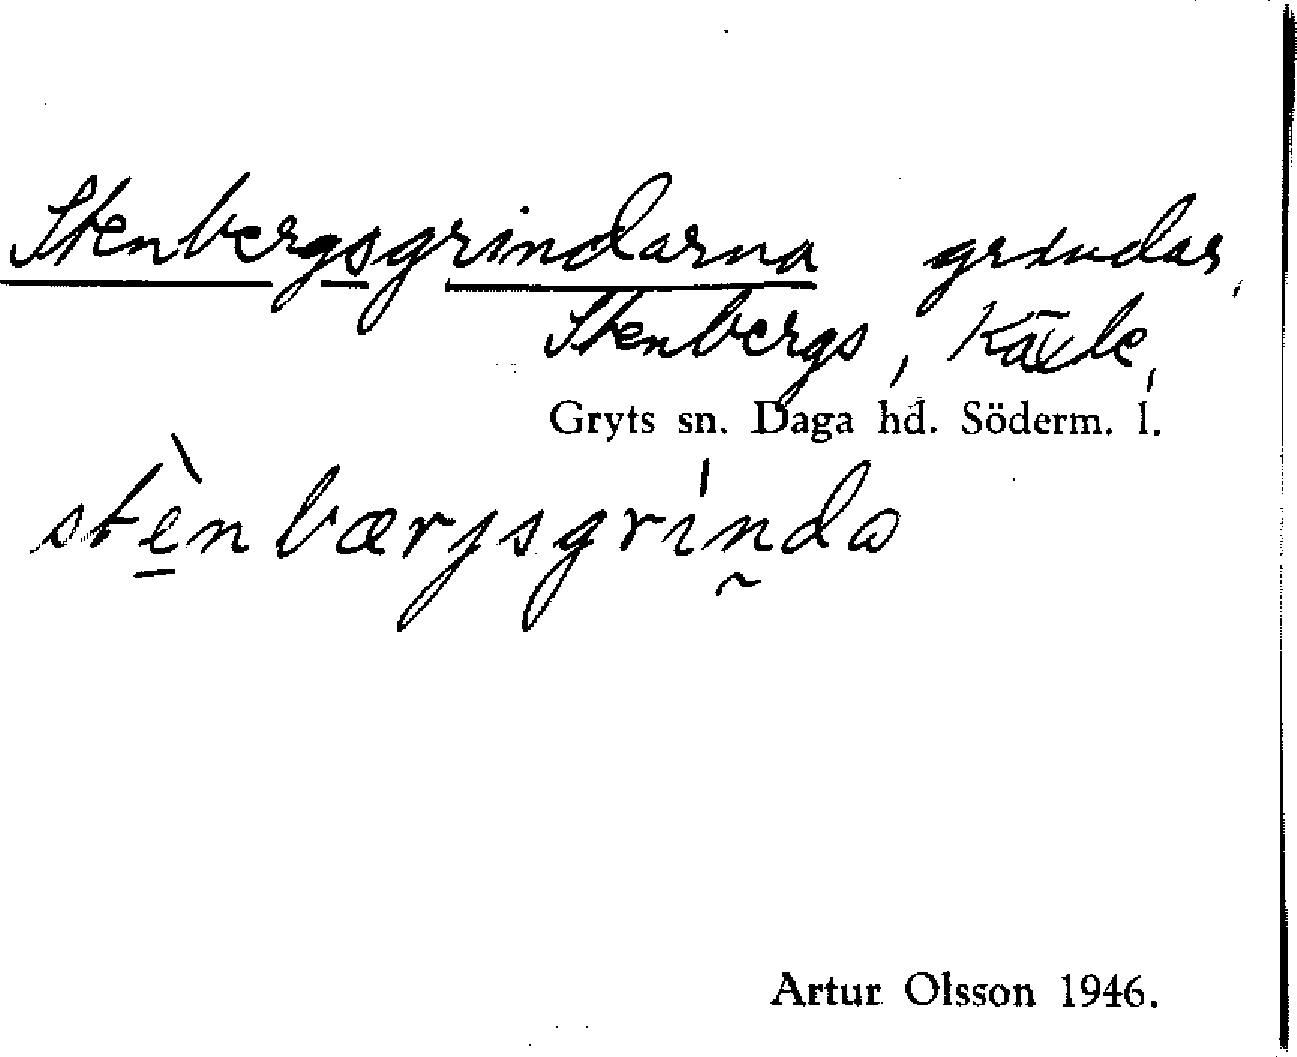 Stenbergsgrindarna grindar,
Stenbergs, Käxle,
Gryts sn. Daga hd. Söderm. l.
stènbærjsgrínda
Artur Olsson 1946.